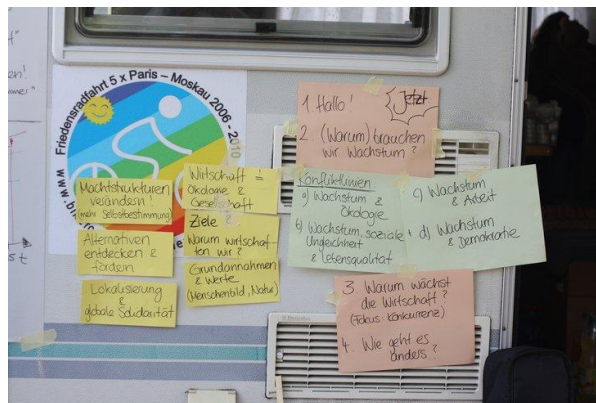 Friedensradfahrt 5 x Paris – Moskau 2006 - 2010
www.
Machtstrukturen
verändern!
(mehr Selbstbestimmung)
Alternativen
entdecken &
fördern
Lokalisierung
&
globale Solidarität
Wirtschaft
Ökologie &
Gesellschaft
Ziele?
Warum wirtschaf-
ten wir?
Grundannahmen
& Werte
(Menschenbild, Natur)
1 Hallo!
Jetzt
2 (Warum) brauchen
wir Wachstum?
Konfliktlinien:
a) Wachstum &
Ökologie
b) Wachstum, soziale
Ungleichheit
& Lebensqualität
c) Wachstum
& Arbeit
d) Wachstum
& Demokratie
3 Warum wächst
die Wirtschaft?
(Fokus: Konkurrenz)
4. Wie geht es
anders?
Electrolux